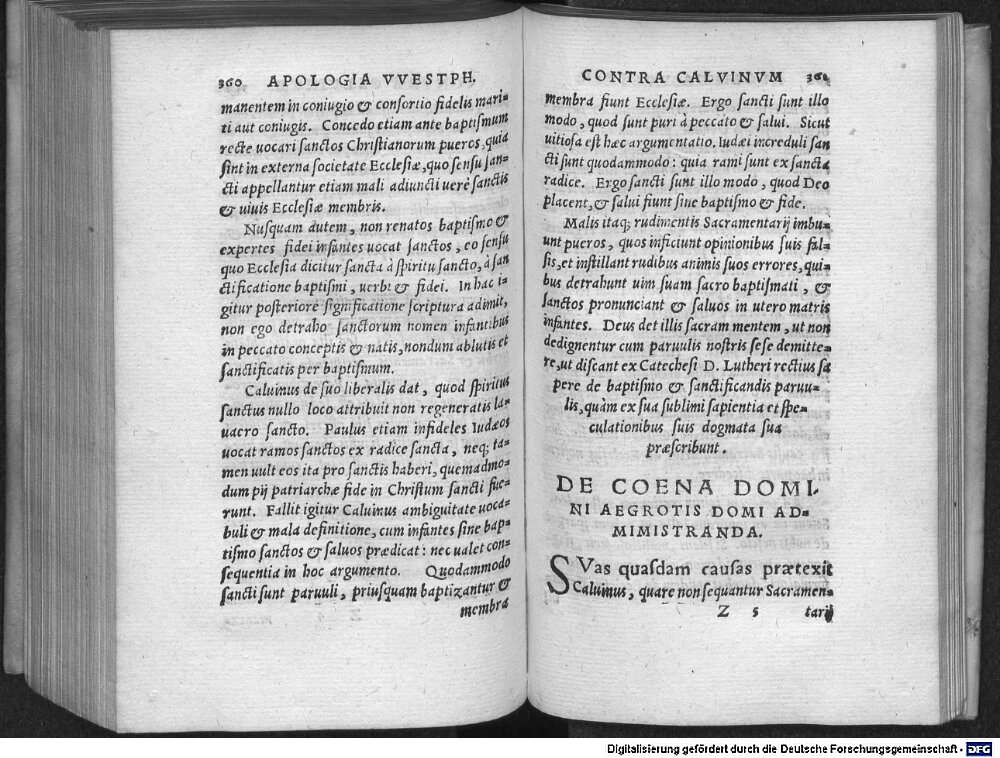 360 APOLOGIA VVESTPH.
manentem in coniugio & consortio fidelis mari-
ti aut coniugis. Concedo etiam ante baptismum
recte uocari sanctos Christianorum pueros, quia
sint in externa societate Ecclesiæ, quo sensu san-
cti appellantur etiam mali adiuncti uerè sanctis
& uiuis Ecclesiæ membris.
Nusquam autem, non renatos baptismo &
expertes fidei infantes uocat sanctos, eo sensu
quo Ecclesia dicitur sancta à spiritu sancto, à san
ctificatione baptismi, uerbi & fidei. In hac i-
gitur posteriore significatione scriptura adimit,
non ego detraho sanctorum nomen infantibus
in peccato conceptis & natis, nondum ablutis et
sanctificatis per baptismum.
Caluinus de suo liberalis dat, quod spiritus
sanctus nullo loco attribuit non regeneratis la-
uacro sancto. Paulus etiam infideles Iudæos
uocat ramos sanctos ex radice sancta, neq; ta-
men uult eos ita pro sanctis haberi, quemadmo-
dum pij patriarchæ fide in Christum sancti fue-
runt. Fallit igitur Caluinus ambiguitate uoca-
buli & mala definitione, cum infantes sine bap-
tismo sanctos & saluos prædicat: nec ualet con-
sequentia in hoc argumento. Quodammodo
sancti sunt paruuli, priusquam baptizantur &
membra
CONTRA CALVINVM 361
membra fiunt Ecclesiæ. Ergo sancti sunt illo
modo, quod sunt puri à peccato & salui. Sicut
uitiosa est hæc argumentatio. Iudæi increduli san
cti sunt quodammodo: quia rami sunt ex sancta
radice. Ergo sancti sunt illo modo, quod Deo
placent, & salui fiunt sine baptismo & fide.
Malis itaq; rudimentis Sacramentarij imbu-
unt pueros, quos inficiunt opinionibus suis fal-
sis, et instillant rudibus animis suos errores, qui-
bus detrahunt uim suam sacro baptismati, &
sanctos pronunciant & saluos in utero matris
infantes. Deus det illis sacram mentem, ut non
dedignentur cum paruulis nostris sese demitte-
re, ut discant ex Catechesi D. Lutheri rectius sa
pere de baptismo & sanctificandis paruu-
lis, quàm ex sua sublimi sapientia et spe-
culationibus suis dogmata sua
præscribunt.
DE COENA DOMI-
NI AEGROTIS DOMI AD-
MIMISTRANDA.
SVas quasdam causas prætexit
Caluinus, quare non sequantur Sacramen-
Z 5 tarij
Digitalisierung gefördert durch die Deutsche Forschungsgemeinschaft - DFG